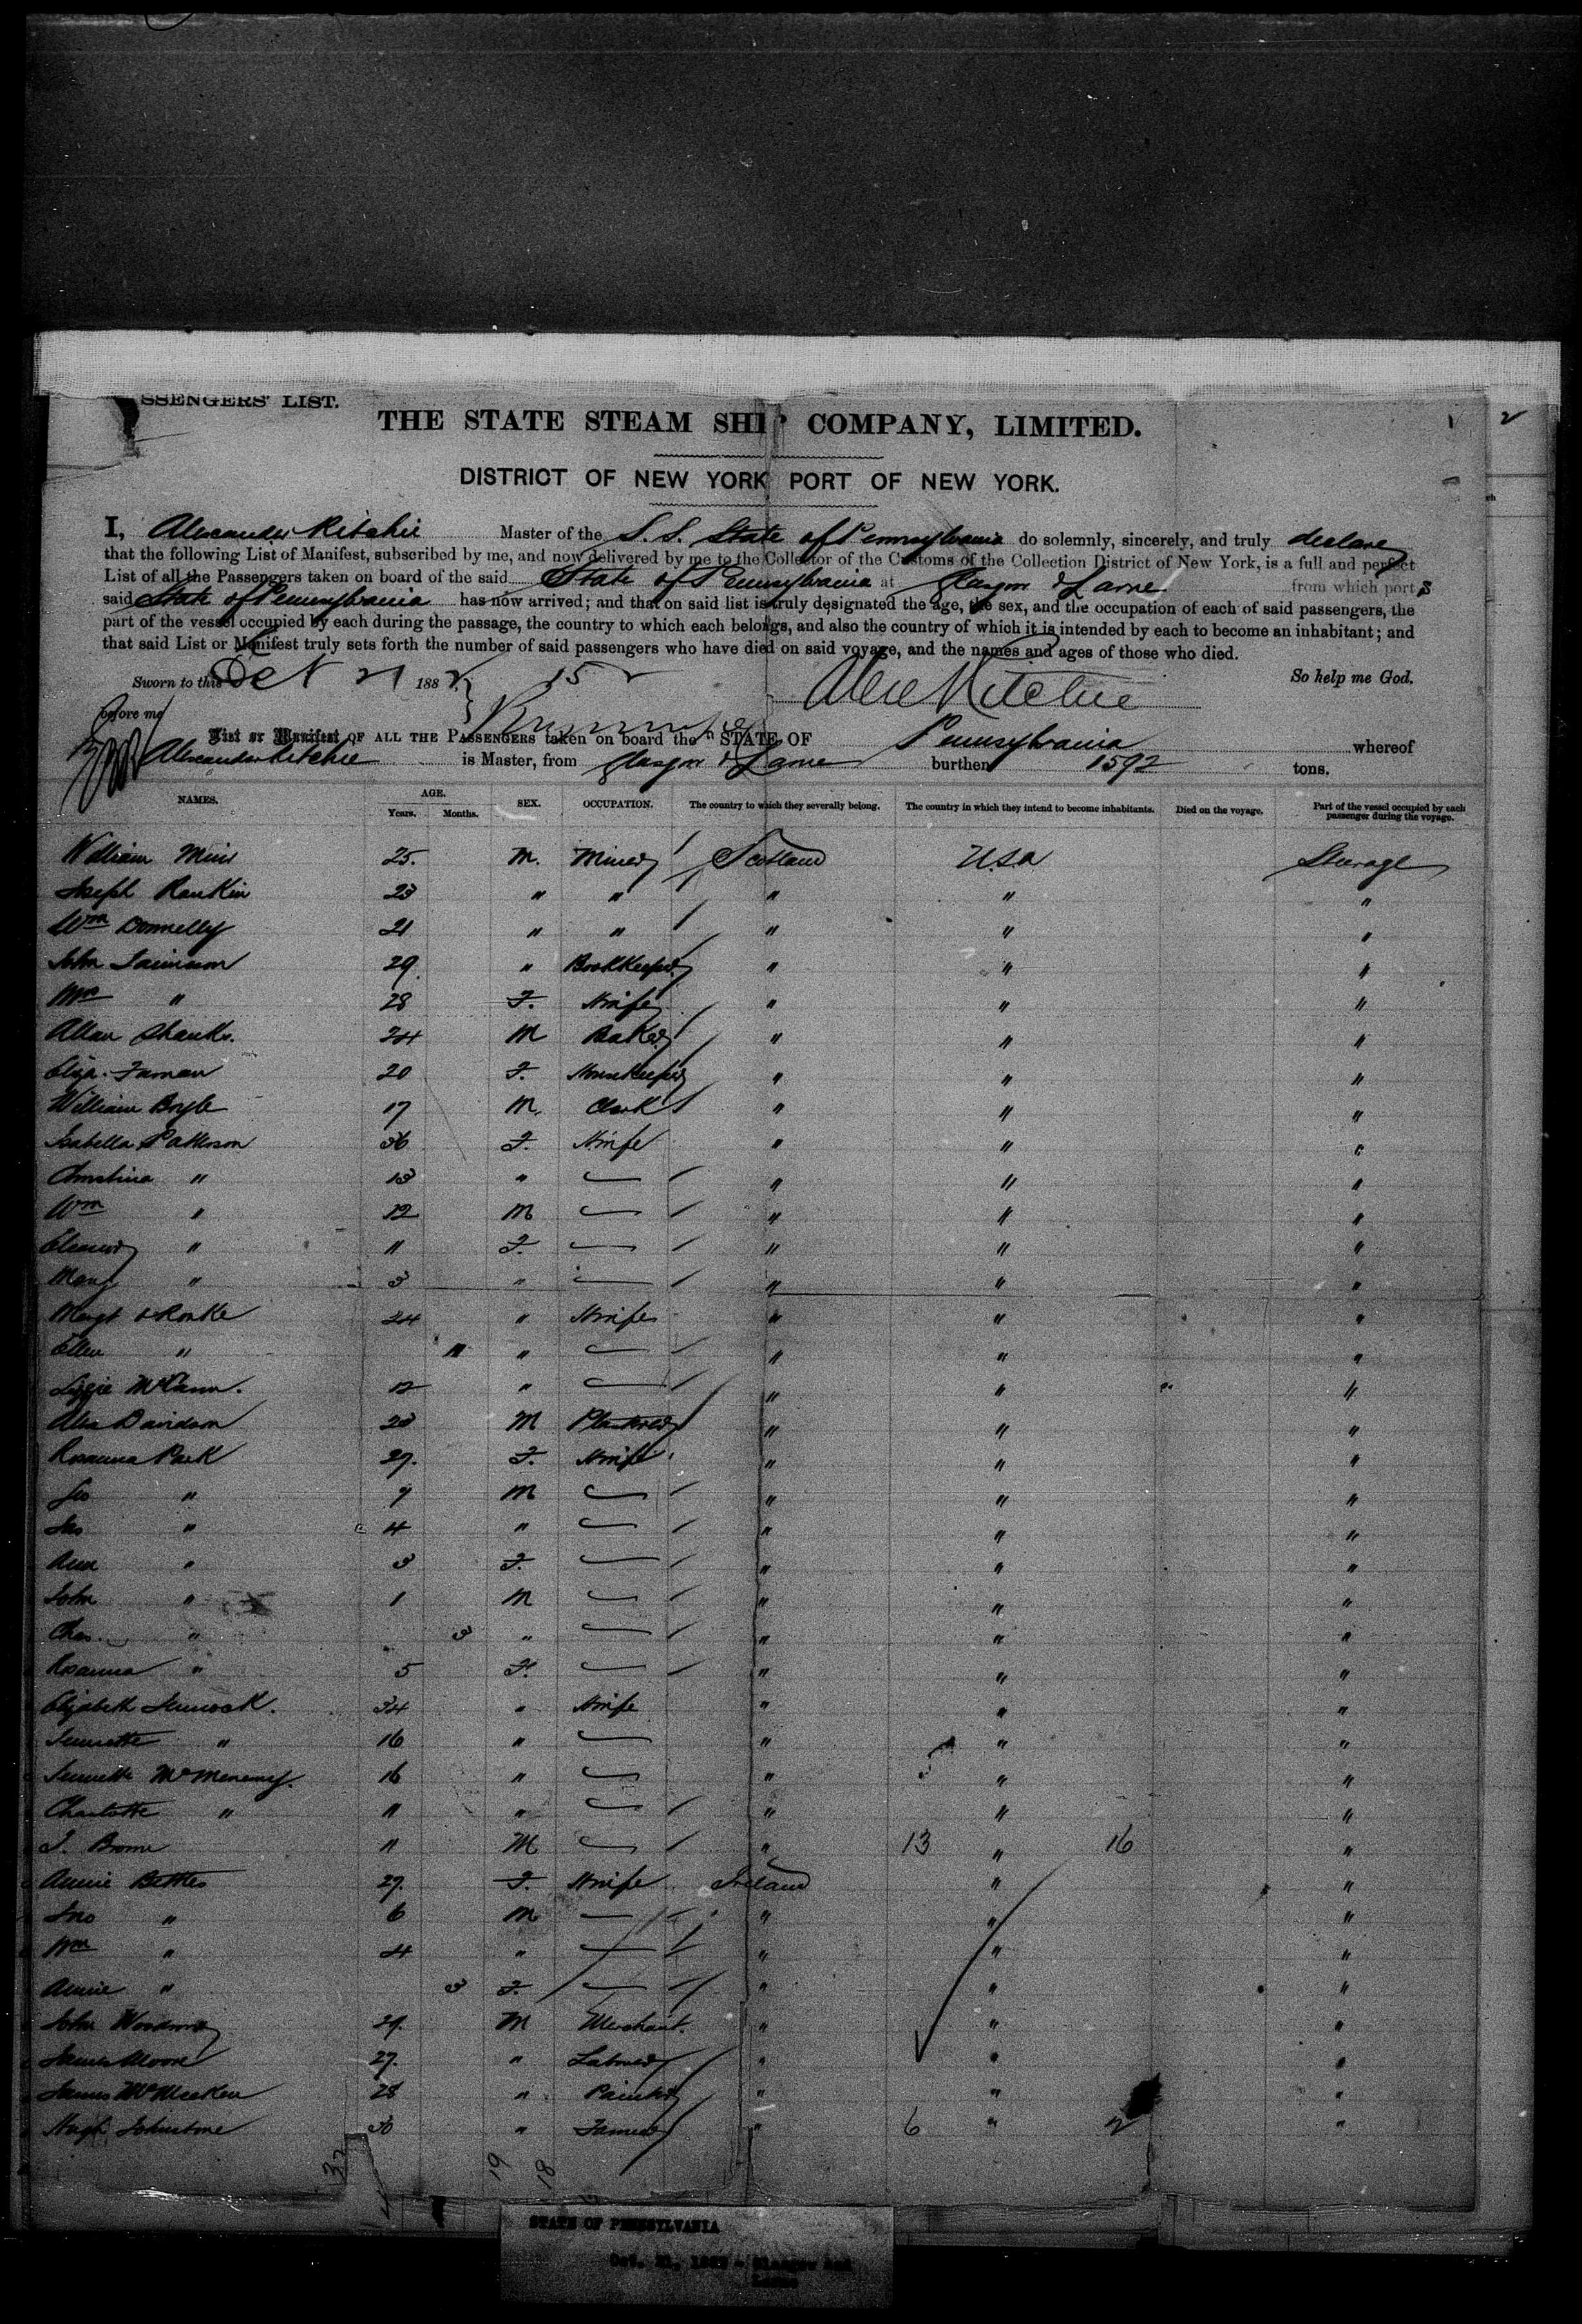 SSENGERS' LIST.
THE STATE STEAM SHIP COMPANY, LIMITED.
2
DISTRICT OF NEW YORK PORT OF NEW YORK.
I, Alexander Ritchie Master of the S.S. State of Pennsylvania do solemnly, sincerely, and truly declare
that the following List of Manifest, subscribed by me, and now delivered by me to the Collector of the Customs of the Collection District of New York, is a full and perfect
List of all the Passengers taken on board of the said State of Pennsylvania at Glasgow & Larne from which port s
said State of Pennsylvania has now arrived; and that on said list is truly designated the age, the sex, and the occupation of each of said passengers, the
part of the vessel occupied by each during the passage, the country to which each belongs, and also the country of which it is intended by each to become an inhabitant; and
that said List or Manifest truly sets forth the number of said passengers who have died on said voyage, and the names and ages of those who died.
Sworn to this Oct 21 1882 Alex Ritchie So help me God.
before me
List or Manifest OF ALL THE PASSENGERS taken on board the "STATE OF Pennsylvania whereof
Alexander Ritchie is Master, from Glasgow & Larne burthen 1592 tons.
NAMES. AGE. Years. Months. SEX. OCCUPATION. The country to which they severally belong. The country in which they intend to become inhabitants. Died on the voyage. Part of the vessel occupied by each passenger during the voyage.
William Muir 25. M. Miner Scotland U.S.A Steerage
Joseph Rankin 23 " " " " "
Wm Donnelly 21 " " " " "
John Jamieson 29. " Bookkeeper " " "
Mrs " 28 F. Wife " " "
Allan Shanks. 24 M Baker " " "
Eliza. 20 F. Housekeeper " " "
William Boyle 17 M. Clerk " " "
Isabella Patterson 36 F. Wife " " "
Christina " 13 " — " " "
Wm " 12 M — " " "
Eleanor " 11 F. — " " "
Mary " 3 " — " " "
Margt O'Rorke 24 " Wife " " "
Ellen " 11 " — " " "
Lizzie McCann. 12 " — " " "
Alex Davidson 23 M Plasterer " " "
Rosanna Park 29. F. Wife " " "
Geo " 7 M — " " "
Jas " 4 " — " " "
Ann " 3 F. — " " "
John " 1 M — " " "
Chas. " 3 " — " " "
Rosanna " 5 F. — " " "
Elizabeth 34 " Wife " " "
" 16 " — " " "
McMenemy. 16 " — " " "
Charlotte " 11 " — " " "
J. Brown 11 M — " 13 " 16 "
Annie Bettes 27. F. Wife Ireland " "
Jno " 6 M — " " "
Wm " 4 " — " " "
Annie " 3 F. — " " "
John 29. M Merchant. " " "
James Moore 27. " Labourer " " "
James McMeeken 28 " Painter " " "
Hugh Johnstone 30 " Farmer " 6 " 2 "
19 18
STATE OF PENNSYLVANIA
Oct. 21, 1882 - Glasgow and
Larne